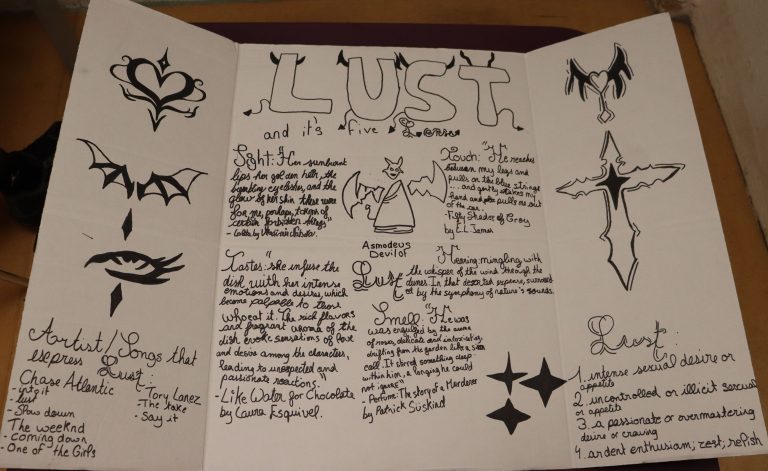 LUST
and it's five
Sight: "Her sunburnt
lips, her golden
eyelashes, and the
glow of her skin these were
for me, perhaps, tokens of
certain forbidden things"
- Lolita by
Touch: "He reaches
between my legs and
pulls on the blue string
... and gently takes my
hand and pulls me out
of the car.
- Fifty Shades of Grey
by E.L James
Asmodeus
Devil of
Lust
Tastes: "she infuse the
dish with her intense
emotions and desires, which
become palpable to those
who eat it. The rich flavors
and fragrant aroma of the
dish evoke sensations of love
and desire among the characters,
leading to unexpected and
passionate reactions."
- Like Water for Chocolate
by Laura Esquivel.
Hearing: mingling with
the whisper of the wind through the
dunes. In that deserted expanse, surround
ed by the symphony of nature's sounds.
Smell: "He was
was engulfed by the aroma
of roses, delicate and intoxicating,
drifting from the garden like a siren
call. It stirred something deep
within him, a longing he could
not ignore"
- Perfume: The story of a Murderer
by Patrick Süskind
Artist/Songs that
express Lust
Chase Atlantic
- lust
- Slow down
The weeknd
- Coming down
- One of the Girls
- Tory Lanez
- The take
- Say it
Lust
1. intense sexual desire or
appetite
2. uncontrolled or illicit sexual
or appetite
3. a passionate or overmastering
desire or craving
4. ardent enthusiam; zest; relish